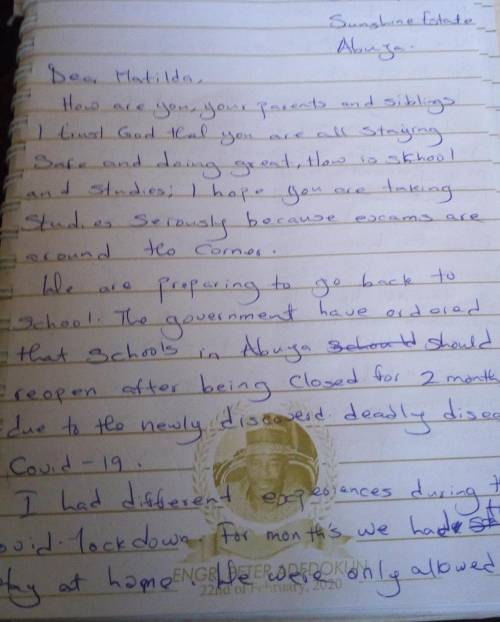 Sunshine Estate
Abuja.
Dear Matilda,
How are you, your parents and siblings
I trust God that you are all staying
Safe and doing great, How is skhool
and studies; I hope you are taking
studies seriously because exams are
around the corner.
We are preparing to go back to
school. The government have ordered
that schools in Abuja should
reopen after being closed for 2 month
due to the newly discoverd deadly disea
Covid-19.
I had different expresiences during t
ovid lockdown. For month's we had
tay at home. We were only allowed
ENGR. PETER ADEDOKUN
22nd of February, 2020